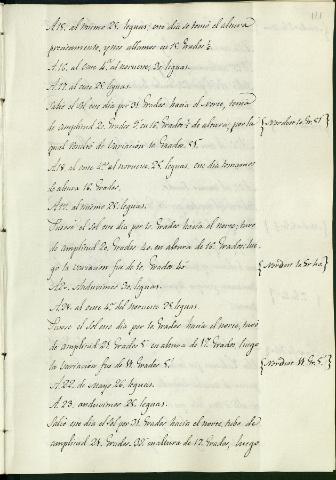 A 15. al mismo 28. leguas; este dia se tomó el altura
precisamente, y nos allamos en 15. Grados ½.
A. 16. al este 4ª al noruest, 30. leguas.
A. 17. al este 28. leguas.
Salió el Sol este dia por 31. Grados hacia el Norte, tomé
de amplitud 2. Grados 5. en 16. Grados ½ de altura; por la
qual Nordesteó de Variación 10. Grados. 51.
{Nordesteo 10. Gr. 51.}
A. 18. al este 4ª al noruest 28. leguas, este dia tomamos
de altura 16. Grados.
A. 19. al mismo 28. leguas.
Pusose el Sol este dia por 10. Grados hacia el norte; tuvo
de amplitud 20. Grados. 40. en altura de 16. Grados; lue-
go la variacion fue de 10. Grados 40.
{Nordest. 10. Gr. 40.}
A 20. Anduvimos 30. leguas.
A. 21. al este 4ª del noruest 28. leguas.
Pusose el Sol este dia por 10. Grados hacia el norte, tuvo
de amplitud 21. Grados 5. en altura de 17. Grados, luego
la Variacion fue de 11. Grados 5.
{Nordest. 11. Gr. 5.}
A. 22. de Mayo 26. leguas.
A 23. anduvimos 28. leguas.
Salió este dia el Sol por 31. Grados hacia el norte, tubo de
amplitud 21. Grados. 38. en altura de 17. Grados, luego